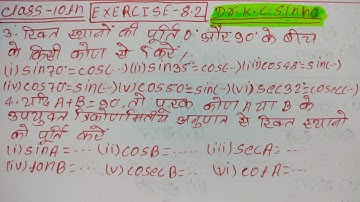 Class-10th EXERCISE-8.2 Dr.K.C.Sinha
3. रिक्त स्थानों की पूर्ति 0° और 90° के बीच
के किसी कोण से करें
(i) sin70°=cos(--) (ii) sin35°=cos(--) (iii) cos48°=sin(--)
(iv) cos70°=sin(--) (v) cos50=sin(--) (vi) sec32°=cosec(--)
4. यदि A+B=90°, तो पूरक कोण A या B के
उपयुक्त त्रिकोणमितीय अनुपात से रिक्त स्थानों
को पूर्ति करें
(i) sinA=--- (ii) cosB=----- (iii) secA=----
(iv) tanB=--- (v) cosecB=---- (vi) cotA=---